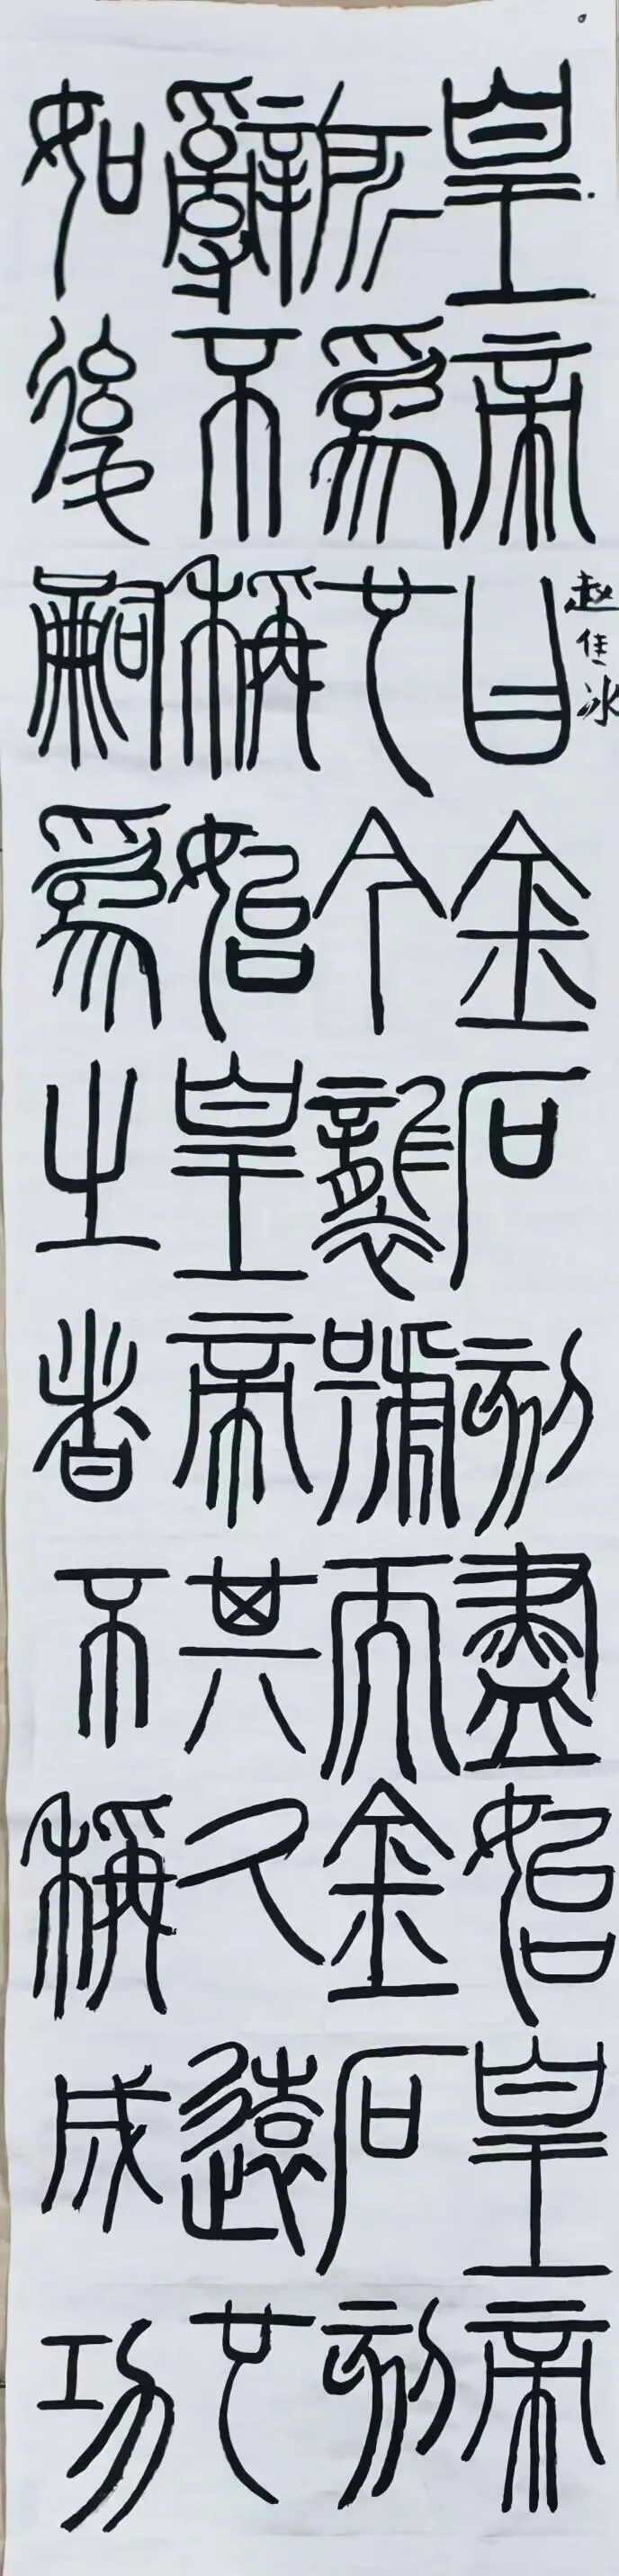 皇帝曰金石刻盡始皇帝
所爲也今襲號而金石刻
辭不稱始皇帝其久遠也
如後嗣爲之者不稱成功
赵佳冰